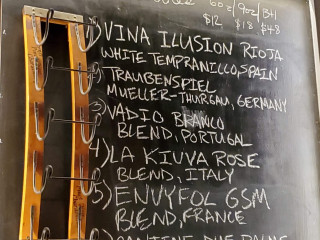 6oz|9oz|Btl
$12 $18 $48
1) VINA ILUSION RIOJA
WHITE TEMPRANILLO, SPAIN
2) TRAUBENSPIEL
MUELLER-THURGAU, GERMANY
3) VADIO BRANCO
BLEND, PORTUGAL
4) LA KIUVA ROSE
BLEND, ITALY
5) ENVYFOL GSM
BLEND, FRANCE